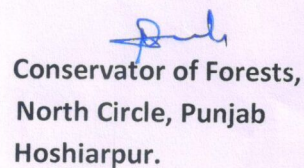 Conservator of Forests,
North Circle, Punjab
Hoshiarpur.